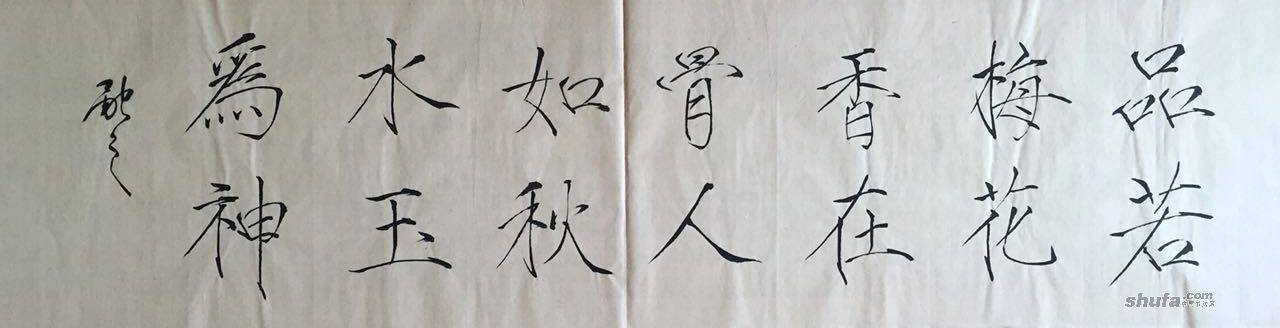 品若
梅花
香在
骨人
如秋
水玉
為神
shufa.com